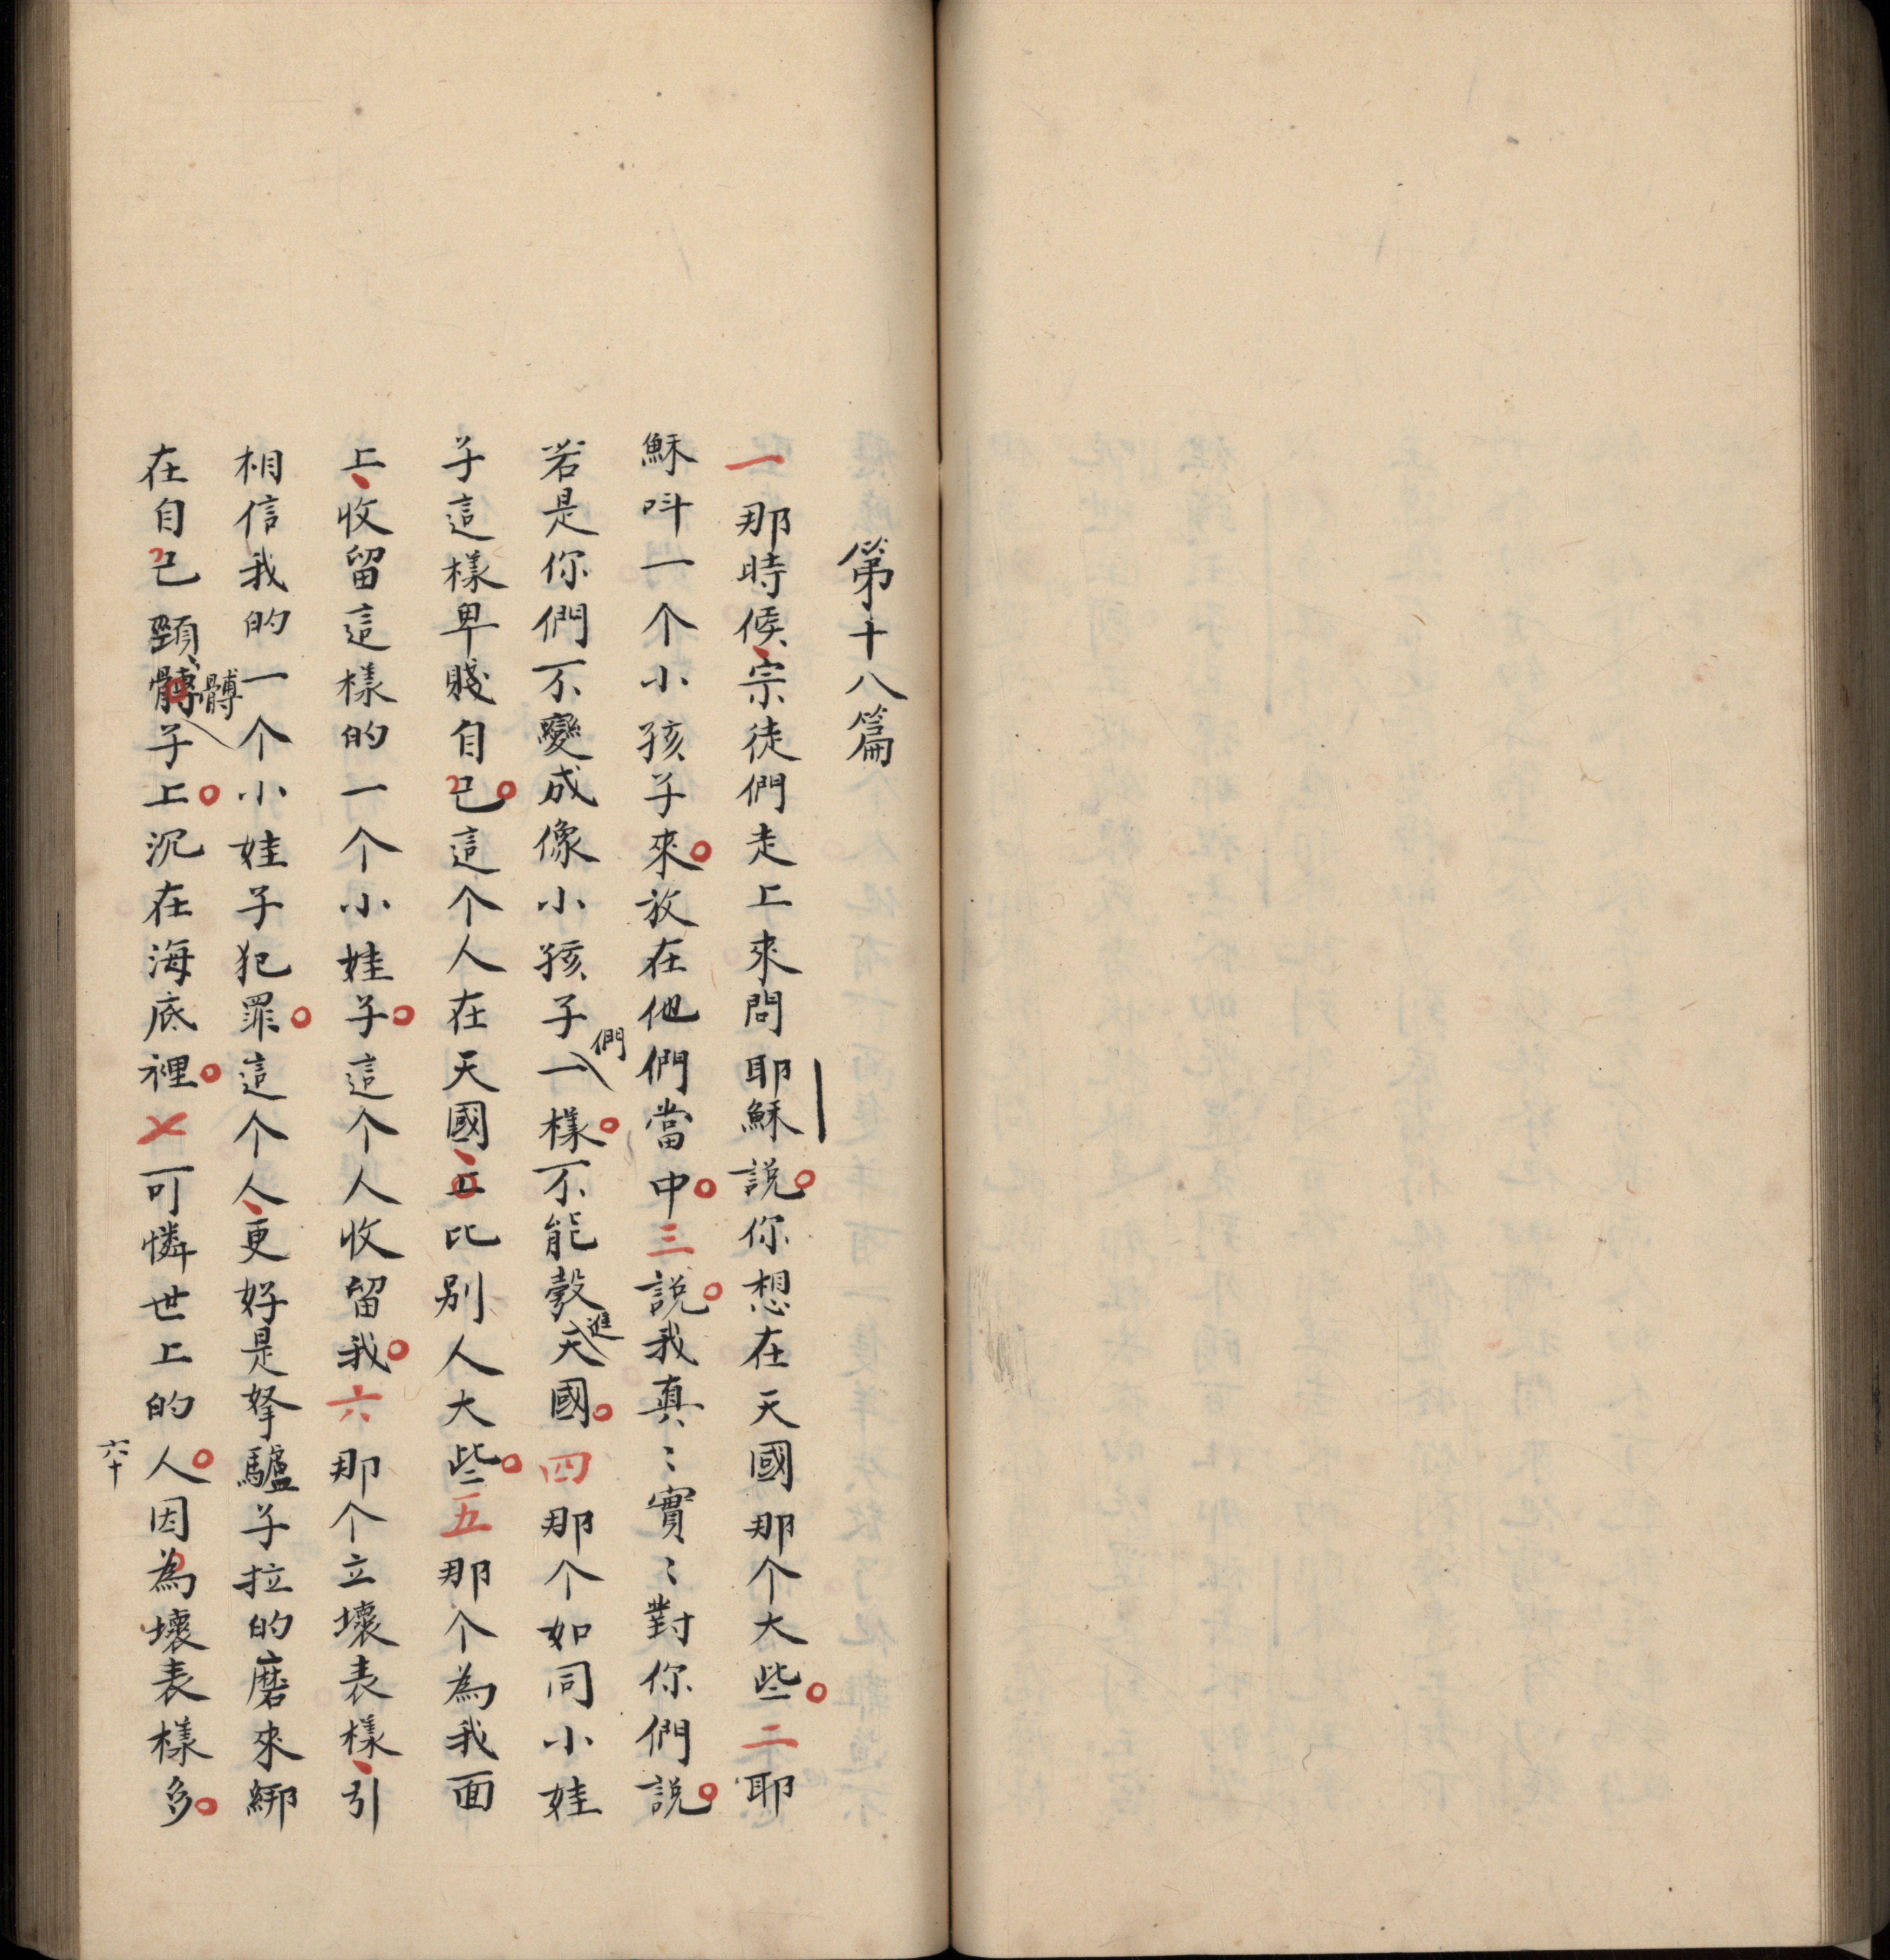 第十八篇
一那時候、宗徒們走上來問耶穌說。你想在天國那个大些。二耶
穌呌一个小孩子來。放在他們當中。三說。我真〻實〻對你們說。
若是你們不變成像小孩子們一樣。不能彀進天國。四那个如同小娃
子這樣卑賤自己。這个人在天國、比别人大些。五那个為我面
上、收留這樣的一个小娃子。這个人收留我。六那个立壞表樣、引
相信我的一个小娃子犯罪。這个人、更好是拏驢子拉的磨來綁
在自己頸髆子上。沉在海底裡。七可憐世上的人。因為壞表樣多。
六十